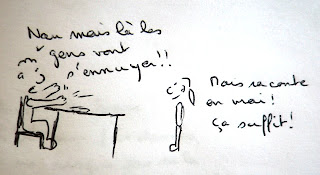 Nan mais là les
gens vont
s'ennuyer!!
Mais raconte
en vrai!
ça suffit!